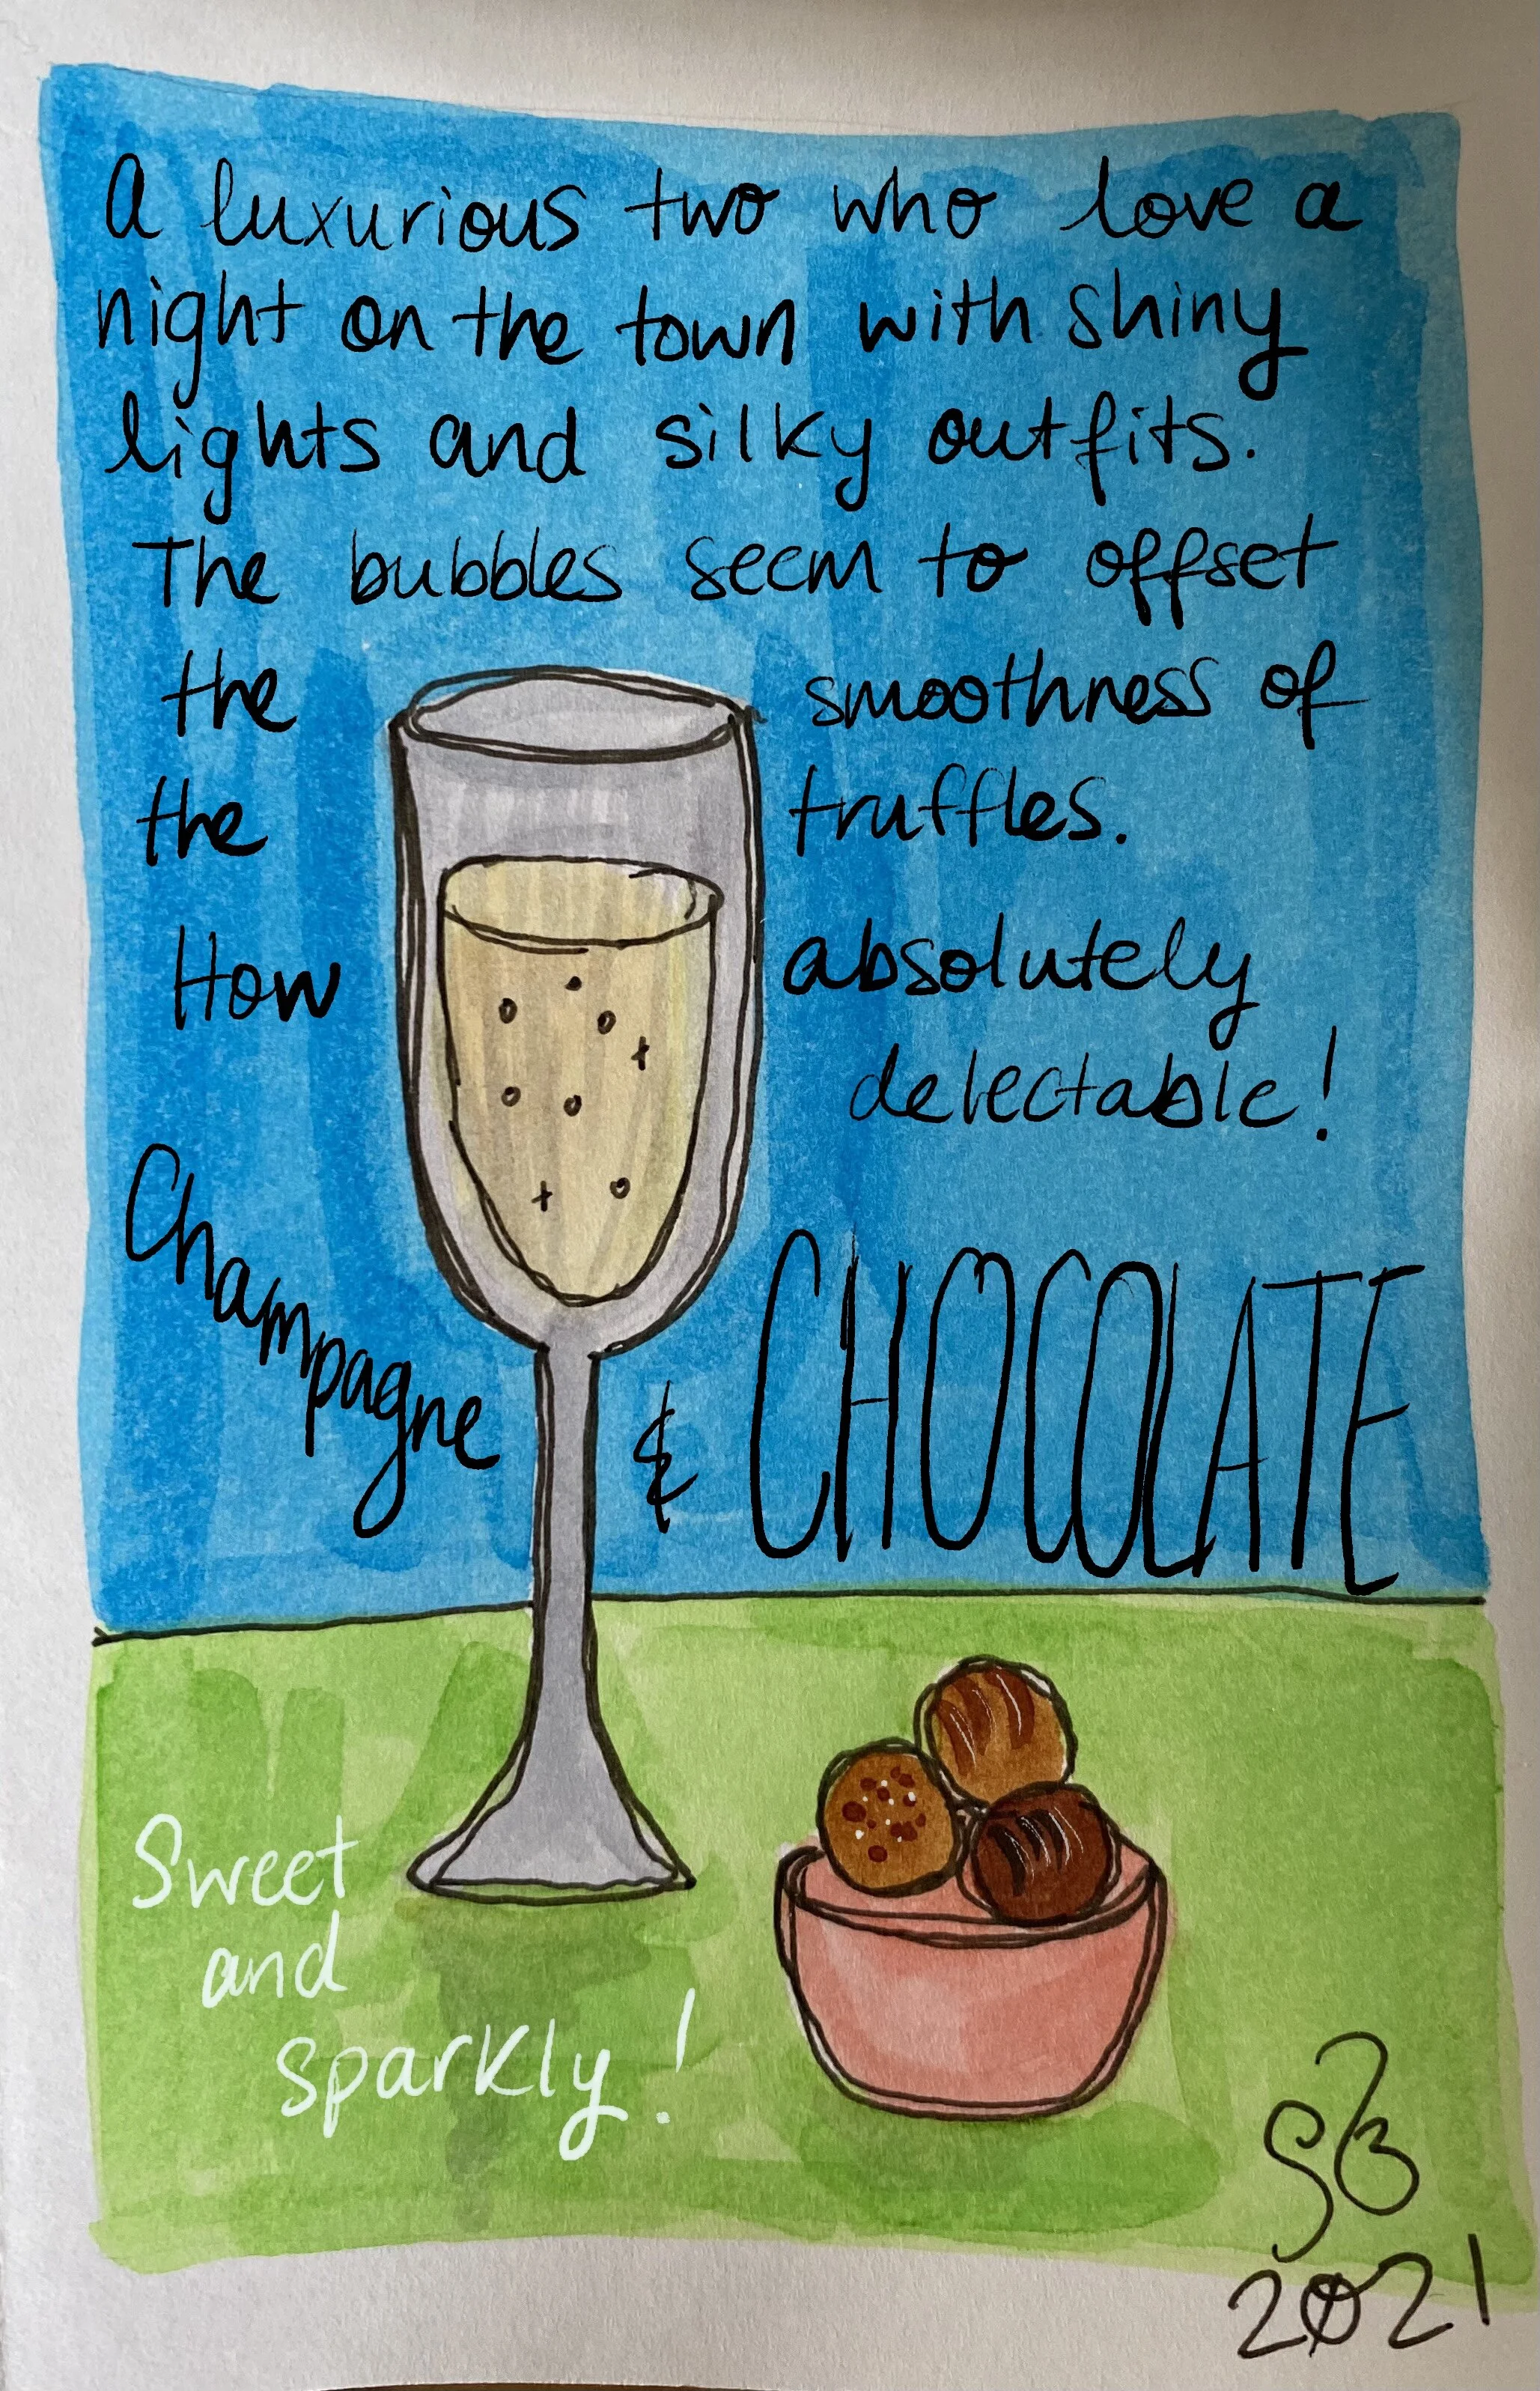 A luxurious two who love a
night on the town with shiny
lights and silky outfits.
The bubbles seem to offset
the smoothness of
the truffles.
How absolutely
delectable!
Champagne & CHOCOLATE
Sweet
and
sparkly!
SB
2021